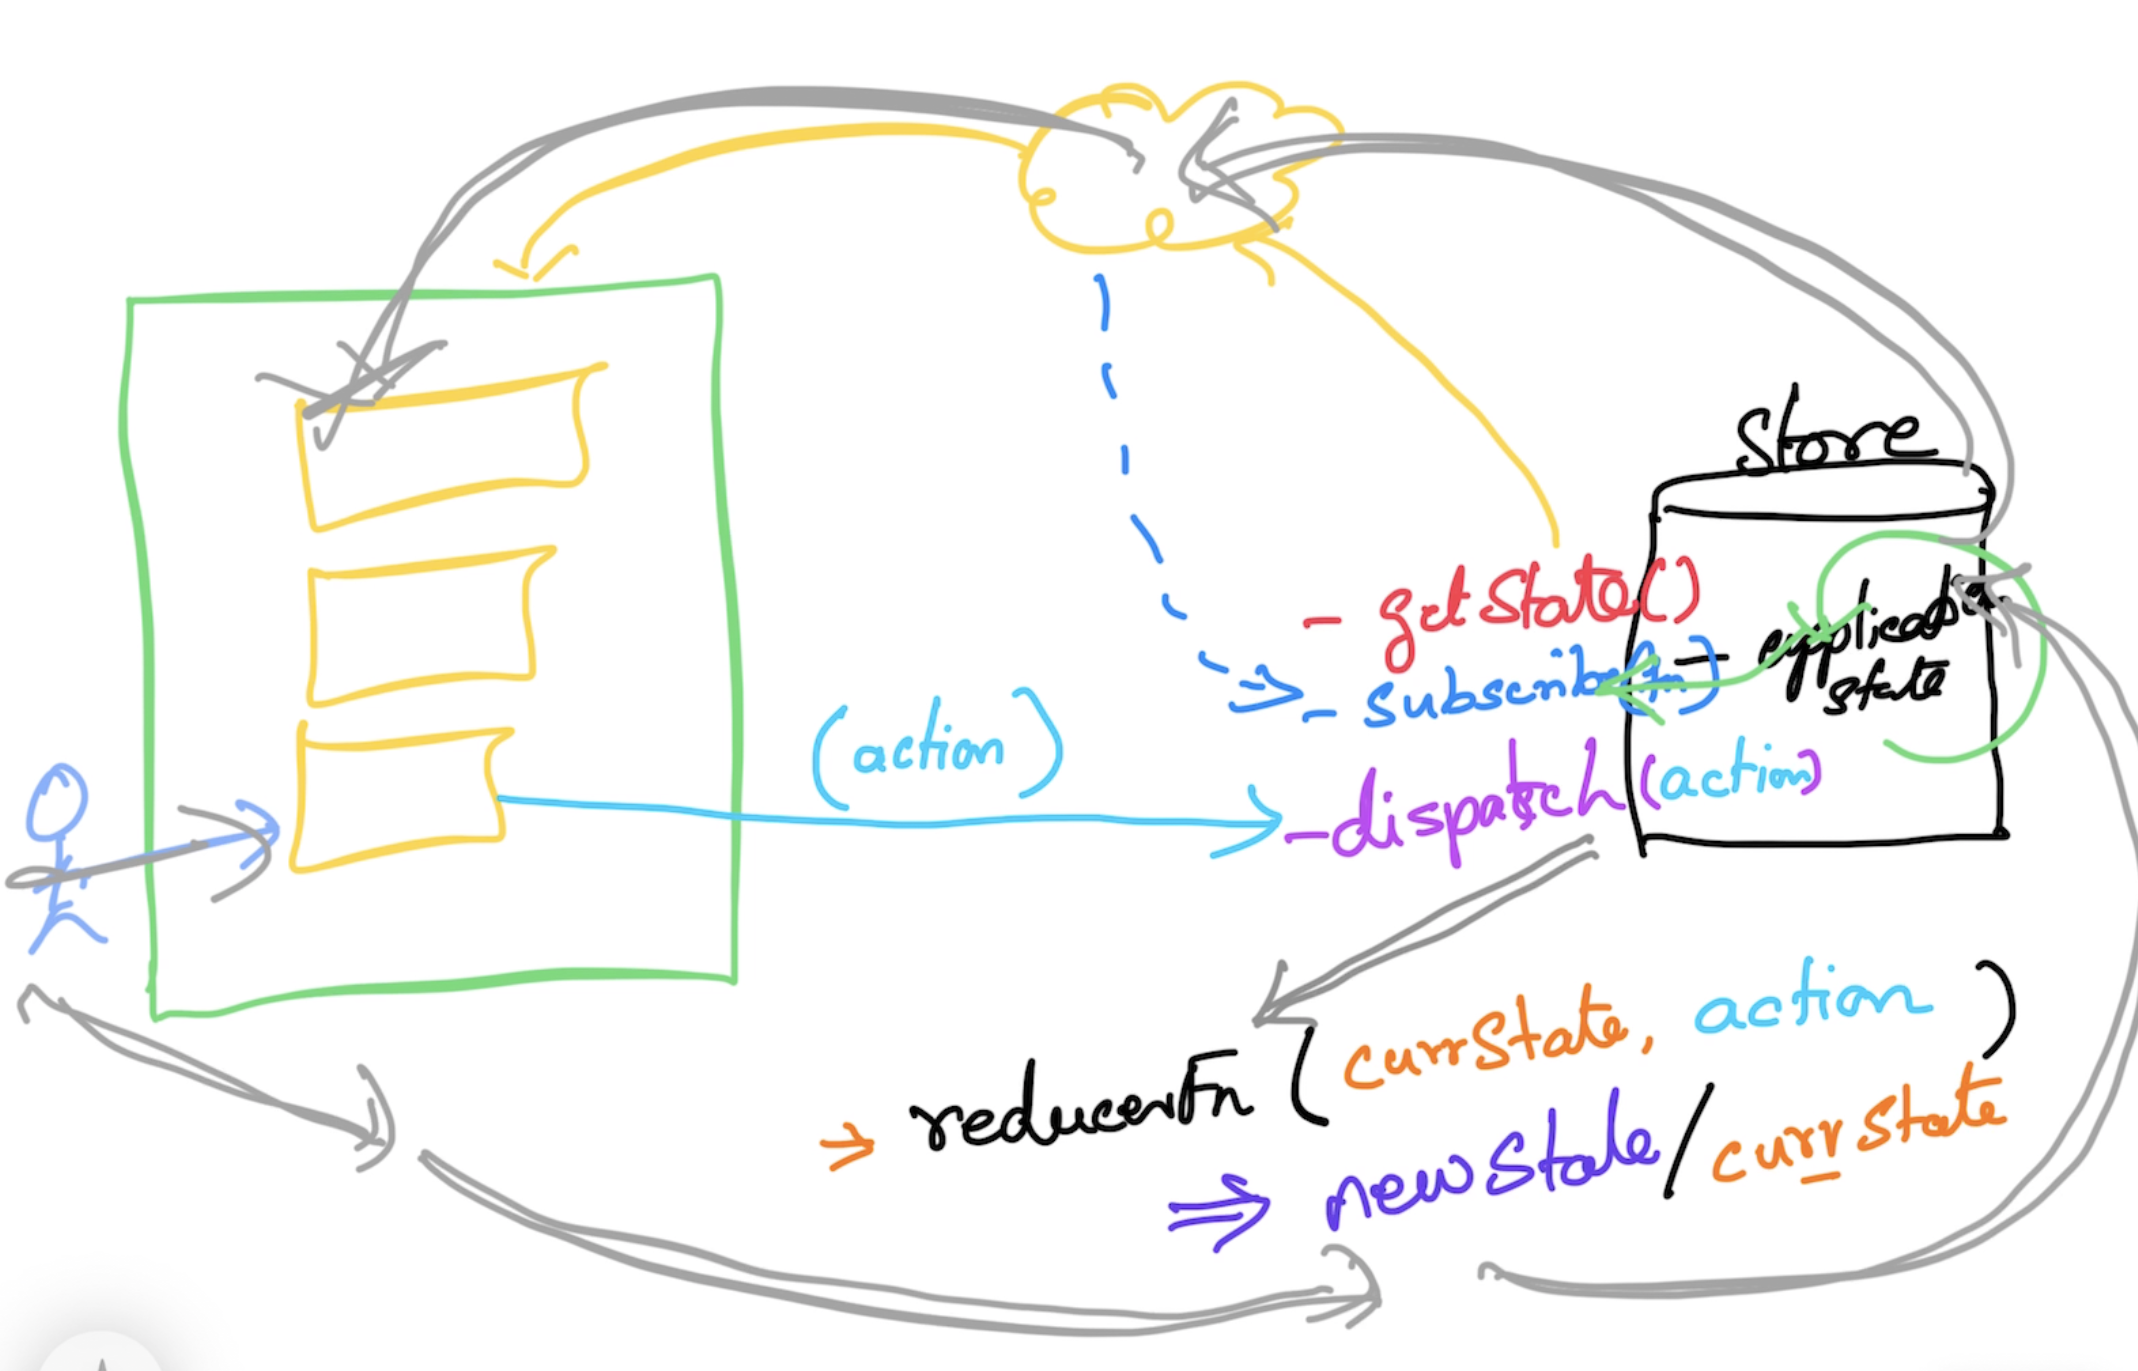 Store
- getState()
- subscribe(fn)
- application
state
(action)
- dispatch (action)
reducerFn (currState, action)
newState/currState